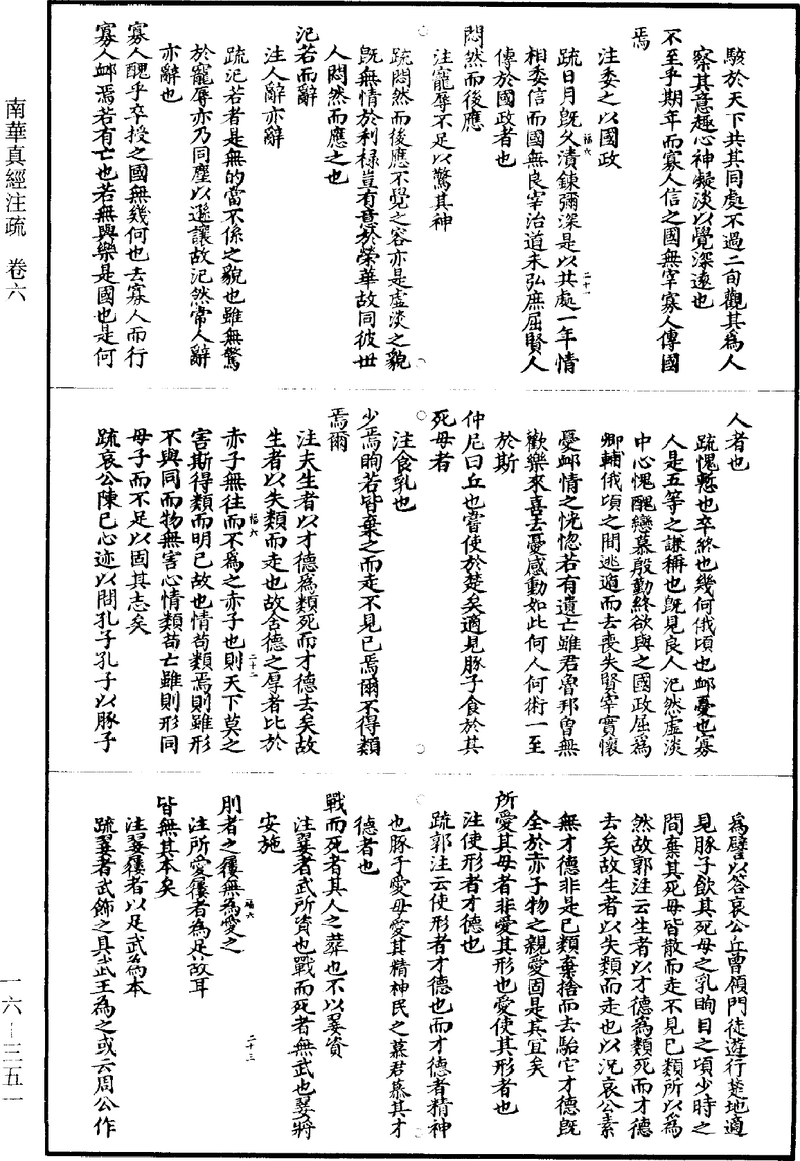 南華真經注疏　卷六
駭於天下共其同處不過二旬觀其為人
察其意趣心神凝淡以覺深遠也
不至乎期年而寡人信之國無宰寡人傳國
焉
注委之以國政
疏日月既久漬鍊彌深是以共處一年情
相委信而國無良宰治道未弘庶屈賢人
傳於國政者也
悶然而後應
注寵辱不足以驚其神
疏悶然而後應不覺之容亦是虛淡之貌
既無情於利祿豈有意於榮華故同彼世
人悶然而應之也
氾若而辭
注人辭亦辭
疏氾若者是無的當不係之貌也雖無驚
於寵辱亦乃同塵以遜讓故氾然常人辭
亦辭也
寡人醜乎卒授之國無幾何也去寡人而行
寡人卹焉若有亡也若無與樂是國也是何
人者也
疏愧慙也卒終也幾何俄頃也卹憂也寡
人是五等之謙稱也既見良人氾然虛淡
中心愧醜戀慕殷勤終欲與之國政屈為
卿輔俄頃之間逃遁而去喪失賢宰實懷
憂卹情之恍惚若有遺亡雖君魯邦曾無
歡樂來喜去憂感動如此何人何術一至
於斯
仲尼曰丘也嘗使於楚矣適見㹠子食於其
死母者
注食乳也
少焉眴若皆棄之而走不見已焉爾不得類
焉爾
注夫生者以才德為類死而才德去矣故
生者以失類而走也故含德之厚者比於
赤子無往而不為之赤子也則天下莫之
害斯得類而明已故也情苟類焉則雖形
不與同而物無害心情類苟亡雖則形同
母子而不足以固其志矣
疏哀公陳已心迹以問孔子孔子以豚子
為譬以答哀公丘曾領門徒遊行楚地適
見豚子飲其死母之乳眴目之頃少時之
間棄其死母皆散而走不見已類所以為
然故郭注云生者以才德為類死而才德
去矣故生者以失類而走也以況哀公素
無才德非是已類棄捨而去駘它才德既
全於赤子物之親愛固是其宜矣
所愛其母者非愛其形也愛使其形者也
注使形者才德也
疏郭注云使形者才德也而才德者精神
也豚子愛母愛其精神民之慕君慕其才
德者也
戰而死者其人之葬也不以翣資
注翣者武所資也戰而死者無武也翣將
安施
刖者之屨無為愛之
注所愛屨者為足故耳
皆無其本矣
注翣屨者以足武為本
疏翣者武飾之具武王為之或云周公作
福六
二十一
福六
二十二
福六
二十三
一六—三五一